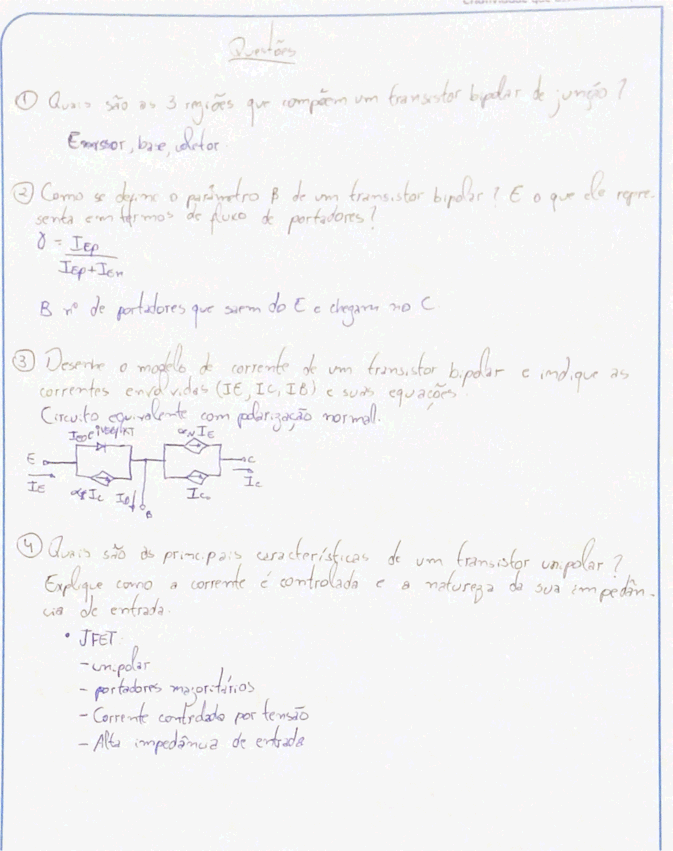 Questões
① Quais são as 3 regiões que compõem um transistor bipolar de junção?
Emissor, base, coletor.
② Como se define o parâmetro β de um transistor bipolar? E o que ele repre-
senta em termos de fluxo de portadores?
γ = IEp / IEp + IEn
B nº de portadores que saem do E e chegam no C
③ Desenhe o modelo de corrente de um transistor bipolar e indique as
correntes envolvidas (IE, IC, IB) e suas equações.
Circuito equivalente com polarização normal.
αN IE
E
C
IE
IC
IB
B
ICo
④ Quais são as principais características de um transistor unipolar?
Explique como a corrente é controlada e a natureza da sua impedân-
cia de entrada.
• JFET
- unipolar
- portadores majoritários
- Corrente controlado por tensão
- Alta impedância de entrada